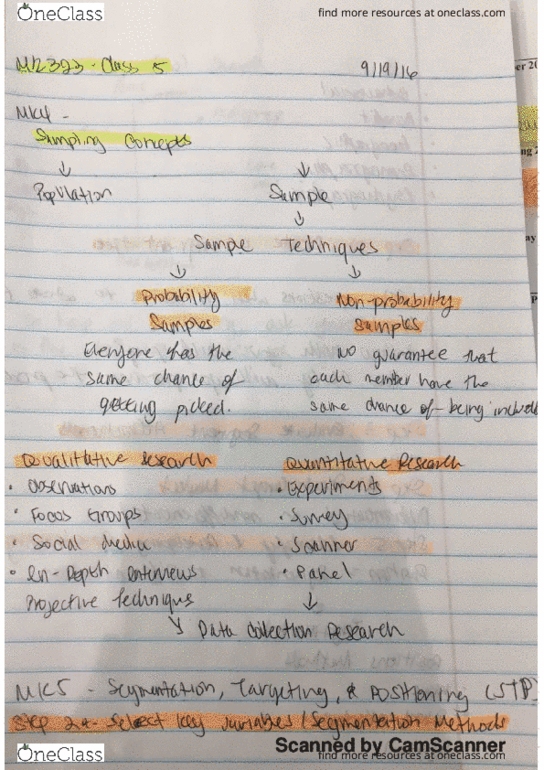 OneClass
find more resources at oneclass.com
MK323 - Class 5
9/19/16
MK4 -
Sampling Concepts
Population
Sample
Sample Techniques
Probability Samples
Everyone has the
same chance of
getting picked.
Non-probability
Samples
no guarantee that
each member have the
same chance of being include
Qualitative research
• Observations
• Focus Groups
• Social Media
• In-Depth interviews
Projective technique
Quantitative Research
• Experiments
• Survey
• Scanner
• Panel
Data collection Research
MK5 - Segmentation, Targeting, & Positioning (STP)
Step 2a - Select key variables/Segmentation Methods
OneClass
Scanned by CamScanner
find more resources at oneclass.com